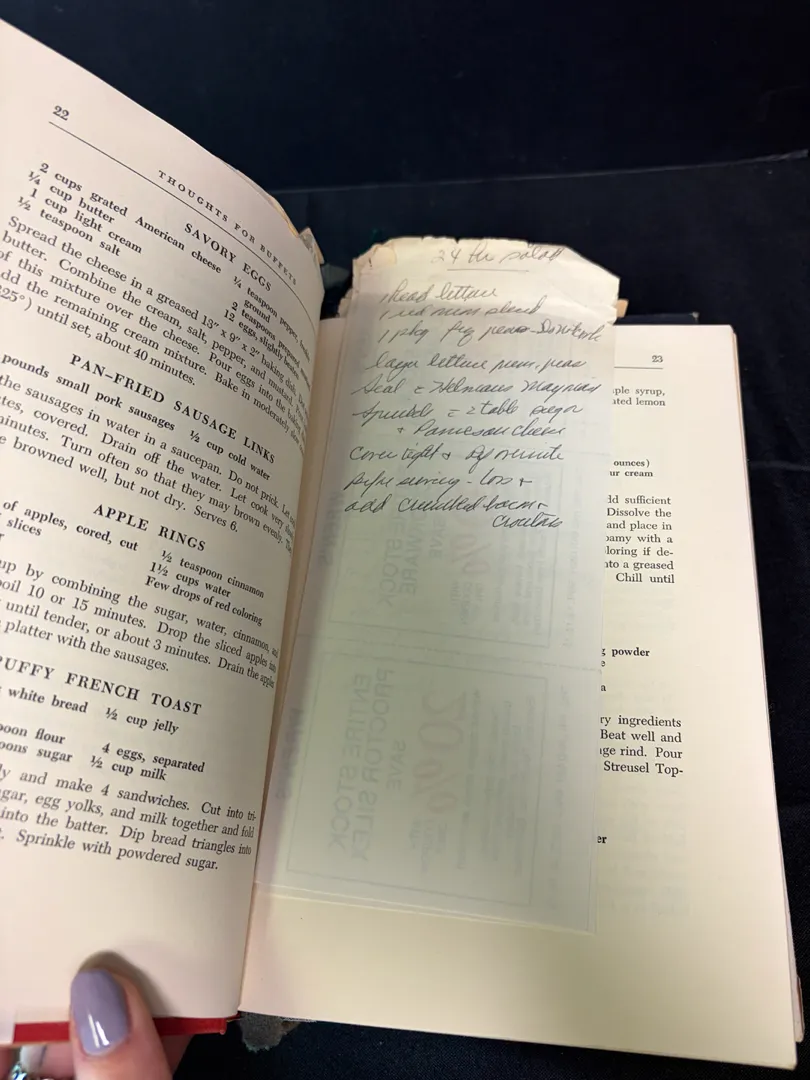 22
THOUGHTS FOR BUFFETS
SAVORY EGGS
2 cups grated American cheese
¼ cup butter
1 cup light cream
½ teaspoon salt
¼ teaspoon pepper,
ground
2 teaspoons prepared
12 eggs, slightly
Spread the cheese in a greased 13" x 9" x 2" baking dish.
butter. Combine the cream, salt, pepper, and mustard.
of this mixture over the cheese. Pour eggs into the baking
dd the remaining cream mixture. Bake in moderately
25°) until set, about 40 minutes.
PAN-FRIED SAUSAGE LINKS
pounds small pork sausages ½ cup cold water
the sausages in water in a saucepan. Do not prick. Let
tes, covered. Drain off the water. Let cook very
minutes. Turn often so that they may brown evenly.
e browned well, but not dry. Serves 6.
APPLE RINGS
of apples, cored, cut
slices
½ teaspoon cinnamon
1½ cups water
Few drops of red coloring
up by combining the sugar, water, cinnamon,
oil 10 or 15 minutes. Drop the sliced apples into
until tender, or about 3 minutes. Drain the apples
platter with the sausages.
UFFY FRENCH TOAST
white bread ½ cup jelly
oon flour 4 eggs, separated
oons sugar ½ cup milk
ly and make 4 sandwiches. Cut into tri-
gar, egg yolks, and milk together and fold
into the batter. Dip bread triangles into
. Sprinkle with powdered sugar.
24 hr salad
1 head lettuce
1 red
1 pkg
layer lettuce
Seal
Sprinkle 2 table sugar
+ Parmesan cheese
Cover tight +
Before serving - toss +
add crumbled bacon +
croutons
23
ple syrup,
ated lemon
ounces)
ur cream
dd sufficient
Dissolve the
and place in
oamy with a
loring if de-
nto a greased
Chill until
g powder
e
a
ry ingredients
Beat well and
nge rind. Pour
Streusel Top-
er
SAVE
ENTIRE STOCK
PROCTOR SILEX
20%